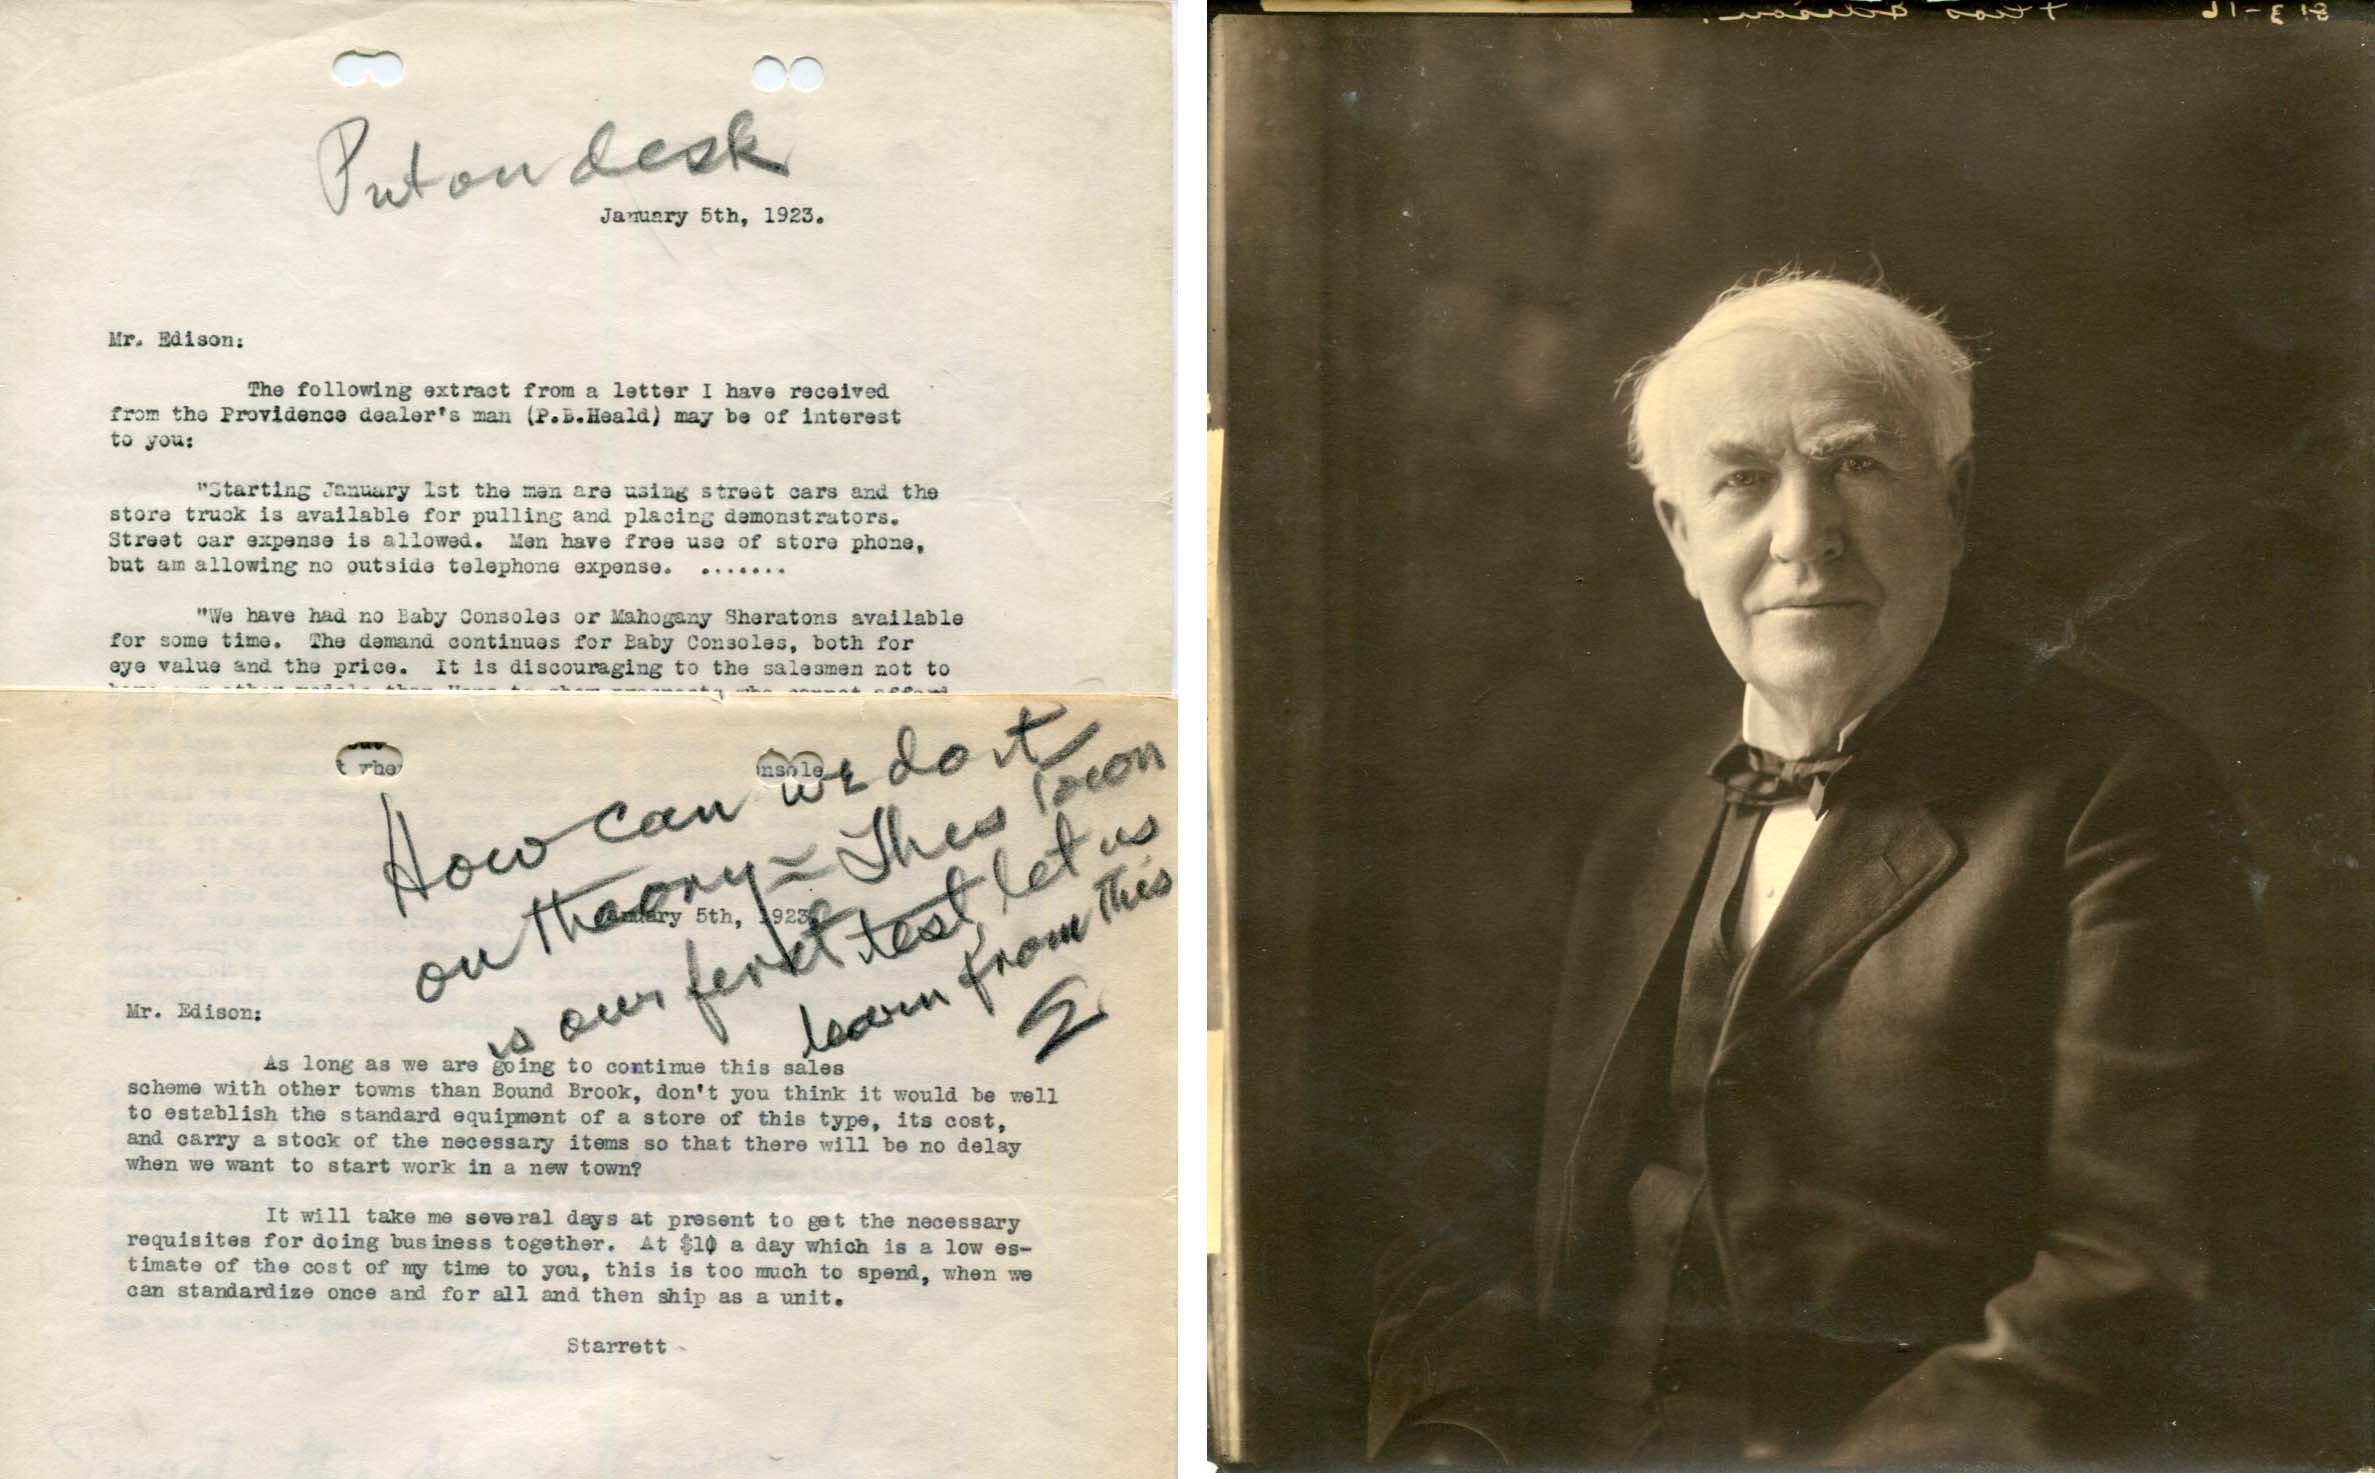 Put on desk
January 5th, 1923.
Mr. Edison:
The following extract from a letter I have received
from the Providence dealer's man (P.B.Heald) may be of interest
to you:
"Starting January 1st the men are using street cars and the
store truck is available for pulling and placing demonstrators.
Street car expense is allowed. Men have free use of store phone,
but am allowing no outside telephone expense. .......
"We have had no Baby Consoles or Mahogany Sheratons available
for some time. The demand continues for Baby Consoles, both for
eye value and the price. It is discouraging to the salesmen not to
How can we do it
on theory = This town
is our first test, let us
learn from this
E
January 5th, 1923.
Mr. Edison:
As long as we are going to continue this sales
scheme with other towns than Bound Brook, don't you think it would be well
to establish the standard equipment of a store of this type, its cost,
and carry a stock of the necessary items so that there will be no delay
when we want to start work in a new town?
It will take me several days at present to get the necessary
requisites for doing business together. At $10 a day which is a low es-
timate of the cost of my time to you, this is too much to spend, when we
can standardize once and for all and then ship as a unit.
Starrett